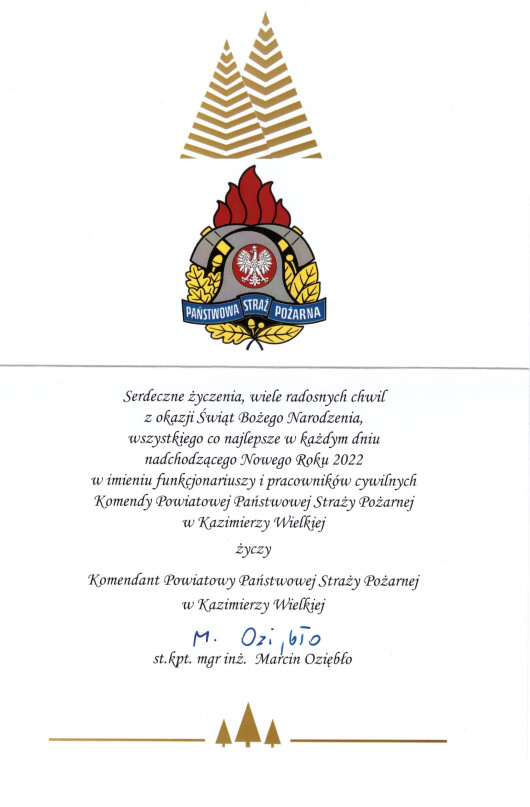 PAŃSTWOWA STRAŻ POŻARNA
Serdeczne życzenia, wiele radosnych chwil
z okazji Świąt Bożego Narodzenia,
wszystkiego co najlepsze w każdym dniu
nadchodzącego Nowego Roku 2022
w imieniu funkcjonariuszy i pracowników cywilnych
Komendy Powiatowej Państwowej Straży Pożarnej
w Kazimierzy Wielkiej
życzy
Komendant Powiatowy Państwowej Straży Pożarnej
w Kazimierzy Wielkiej
M. Oziębło
st.kpt. mgr inż. Marcin Oziębło